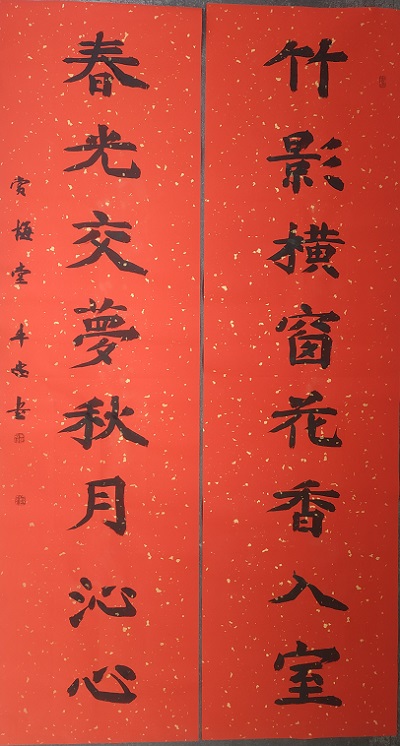 竹影橫窗花香入室
春光交夢秋月沁心
賞梅堂